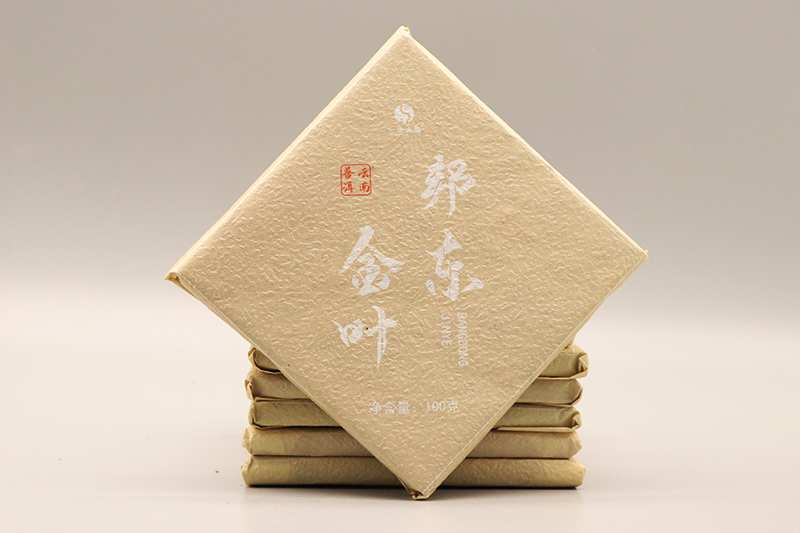 邦东
BANGDONG
金叶
云南
普洱
净含量：100克